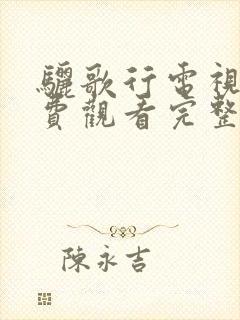 驪歌行電視
費觀看完整
陳永吉